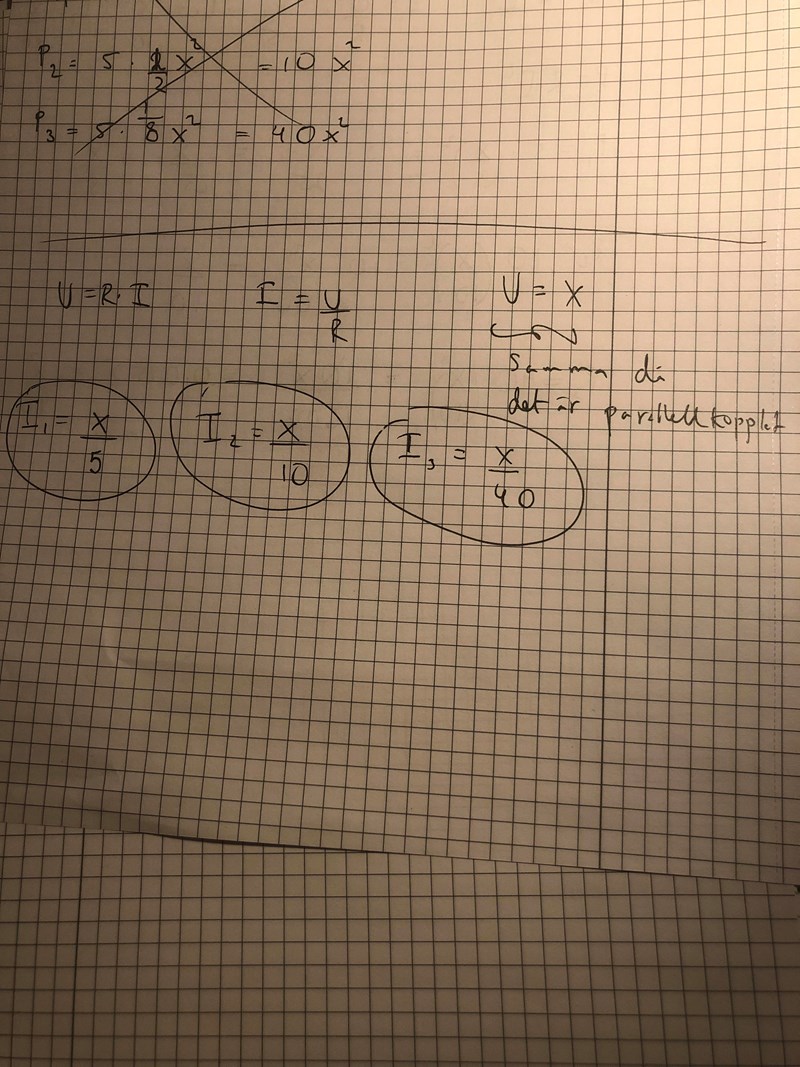 P₂ = 5 · 1/2 x² = 10 x²
P₃ = 5 · 1/8 x² = 40x²
U = R · I I = U/R U = X
Samma då
det är parallellkopplat
I₁ = x/5 I₂ = x/10 I₃ = x/40